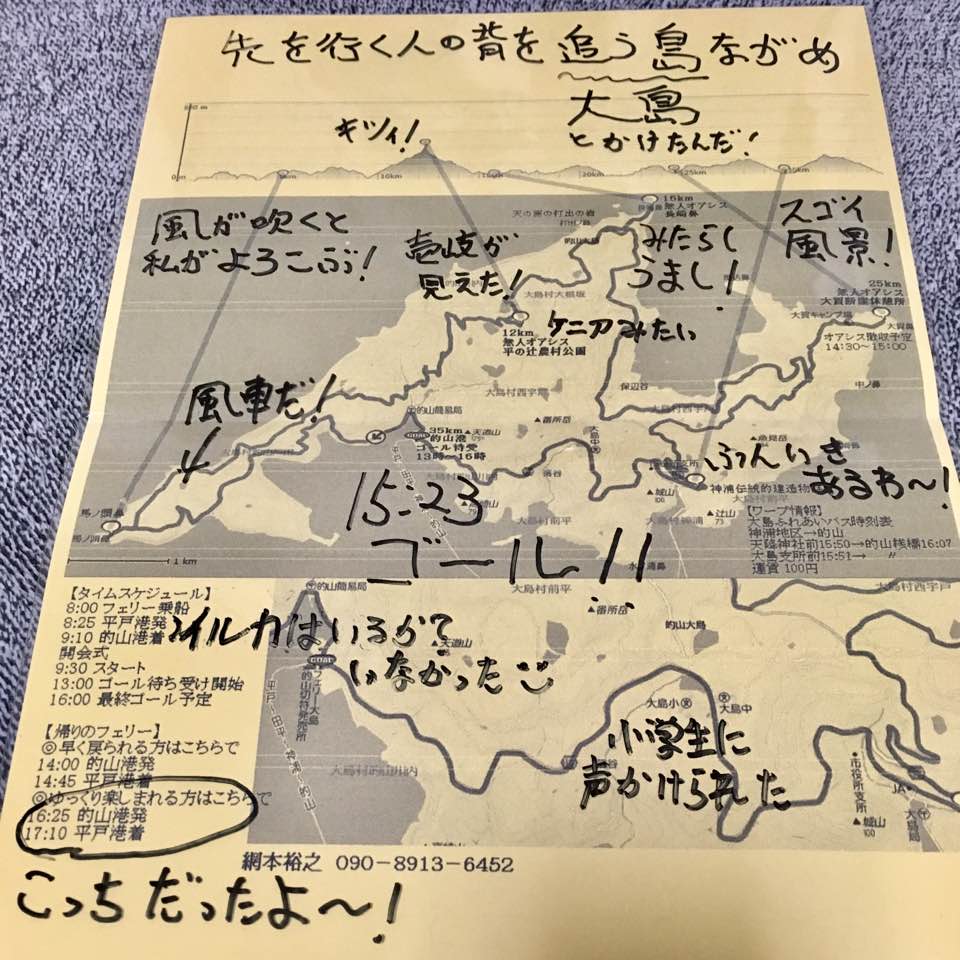 先を行く人の背を追う島ながめ
大島
とかけたんだ!
キツイ!
0m
10km
20km
25km
風が吹くと
私がよろこぶ!
壱岐が
見えた!
みたらし
うまし!
スゴイ
風景!
天の面の打出の岩
15km
無人オアシス
長崎鼻
的山大島
大島村大根坂
25km
無人オアシス
大賀断崖休憩所
大賀キャンプ場
大賀鼻
オアシス撤収予定
14:30~15:00
12km
無人オアシス
平の辻農村公園
ケニアみたい
保辺谷
中ノ鼻
風車だ!
的山簡易局
大島村西宇戸
▲番所岳
大島村西宇戸
35km
的山港
ゴール待受
13時~16時
▲天道山
大島中
▲魚見岳
ふんいき
あるわ~!
馬ノ頭鼻
▲城山
100
神浦伝統的建造物
▲辻山
73
大島村前平
大島村神浦
15:23
ゴール!!
【ワープ情報】
大島ふれあいバス時刻表
神浦地区→的山
天降神社前15:50→的山桟橋16:07
大島支所前15:51→ 〃
運賃 100円
1km
【タイムスケジュール】
8:00 フェリー乗船
8:25 平戸港発
9:10 的山港着
開会式
9:30 スタート
13:00 ゴール待ち受け開始
16:00 最終ゴール予定
的山簡易局
大島村前平
▲番所岳
大島村西宇戸
イルカはいるか?
いなかった
▲天道山
的山大島
フェリー大島
的山切符発売所
平戸~田平~神浦~的山
大島小
大島中
大島村的山川内
小学生に
声かけられた
市役所支所
JA
▲城山
100
大島局
【帰りのフェリー】
◎早く戻られる方はこちらで
14:00 的山港発
14:45 平戸港着
◎ゆっくり楽しまれる方はこちらで
16:25 的山港発
17:10 平戸港着
網本裕之 090-8913-6452
こっちだったよ~!